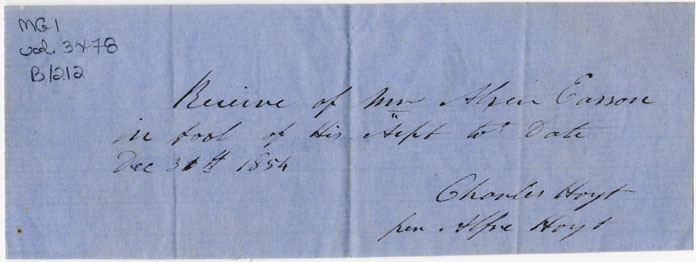 MG1
vol. 3478
B/212
Receive of Mr Alvin Eason
in fool of His Acpt to Date
Dec 31th 1854
Charles Hoyt
per Alfre Hoyt